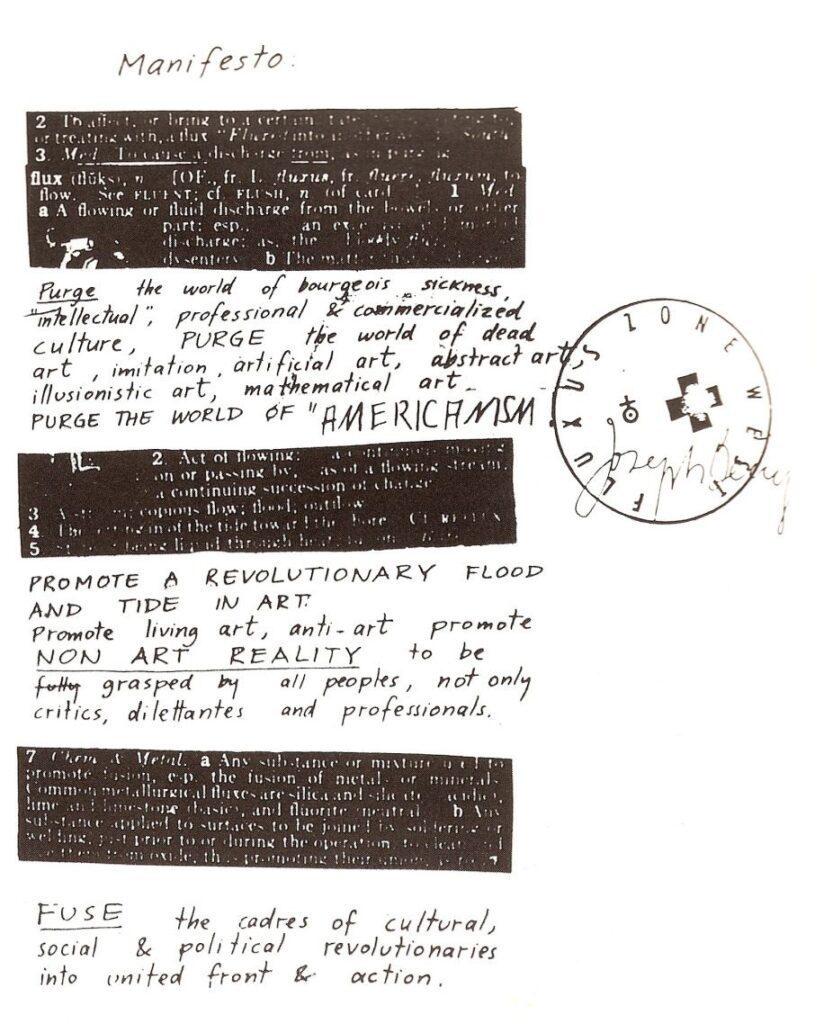 Manifesto:
2 To affect, or bring to a certain state,
or treating with, a flux. "Fluxed into another world." South.
3. Med. To cause a discharge from, as in purging.
flux (flŭks), n. [OF., fr. L. fluxus, fr. fluere, fluxum, to
flow. See FLUENT; cf. FLUSH, n. (of cards).] 1 Med.
a A flowing or fluid discharge from the bowel or other
part; esp., an excessive and morbid
discharge; as, the bloody flux, or
dysentery. b The matter thus discharged.
Purge the world of bourgeois sickness,
"intellectual", professional & commercialized
culture, PURGE the world of dead
art, imitation, artificial art, abstract art,
illusionistic art, mathematical art_
PURGE THE WORLD OF "AMERICANISM"
FLUXUS ZONE WEST
Joseph Beuys
2. Act of flowing: a continuous moving
on or passing by, as of a flowing stream;
a continuing succession of changes
3 A stream; copious flow; flood; outflow
4 The setting in of the tide toward the shore. Cf. REFLUX
5 State of being liquid through heat; fusion. Rare.
PROMOTE A REVOLUTIONARY FLOOD
AND TIDE IN ART.
Promote living art, anti-art promote
NON ART REALITY to be
fully grasped by all peoples, not only
critics, dilettantes and professionals.
7 Chem. & Metal. a Any substance or mixture used to
promote fusion, esp. the fusion of metals or minerals.
Common metallurgical fluxes are silica and silicates (acidic),
lime and limestone (basic), and fluorite (neutral). b Any
substance applied to surfaces to be joined by soldering or
welding, just prior to or during the operation, to clean and
free them from oxide, thus promoting their union, as rosin.
FUSE the cadres of cultural,
social & political revolutionaries
into united front & action.